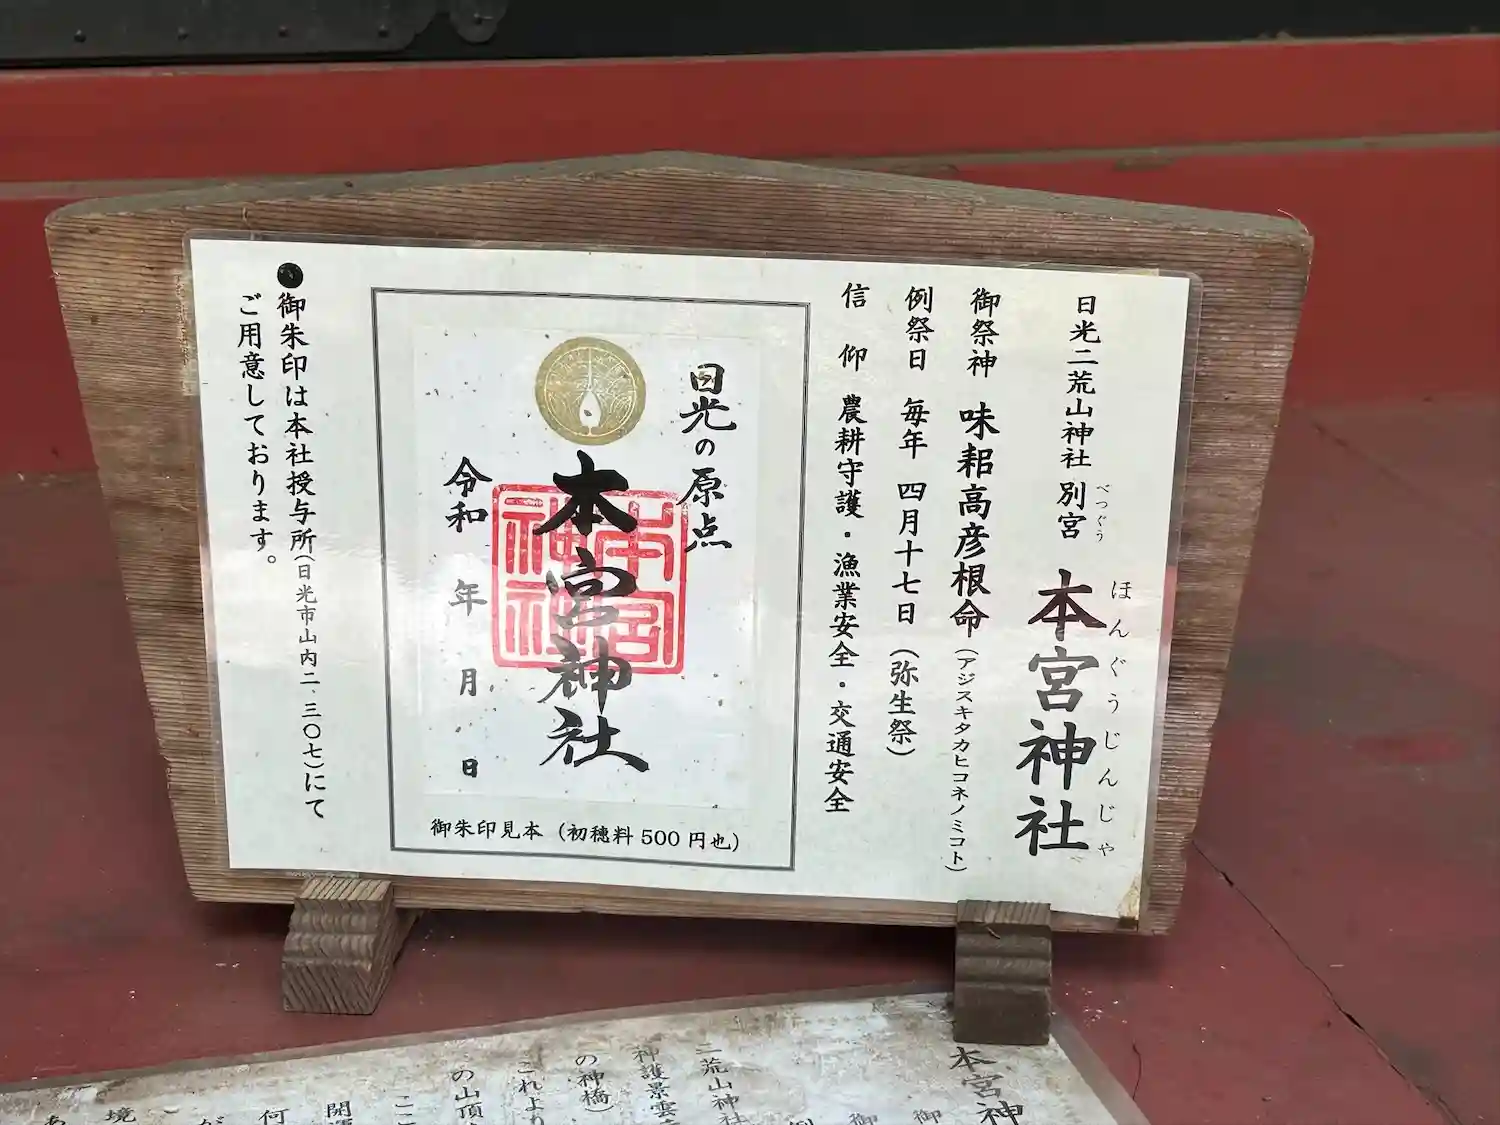 日光二荒山神社 別宮 本宮神社
べつぐう
ほんぐうじんじゃ
御祭神 味耜高彦根命 (アジスキタカヒコネノミコト)
例祭日 毎年 四月十七日 (弥生祭)
信仰 農耕守護・漁業安全・交通安全
日光の原点
本宮神社
本宮神社
令和 年 月 日
御朱印見本 (初穂料500円也)
●御朱印は本社授与所(日光市山内二、三〇七)にて
ご用意しております。
本宮神
御
御
例
二荒山神社
神護景雲
の神橋)
これより
の山頂
ここ
開運
何
が
境
あ